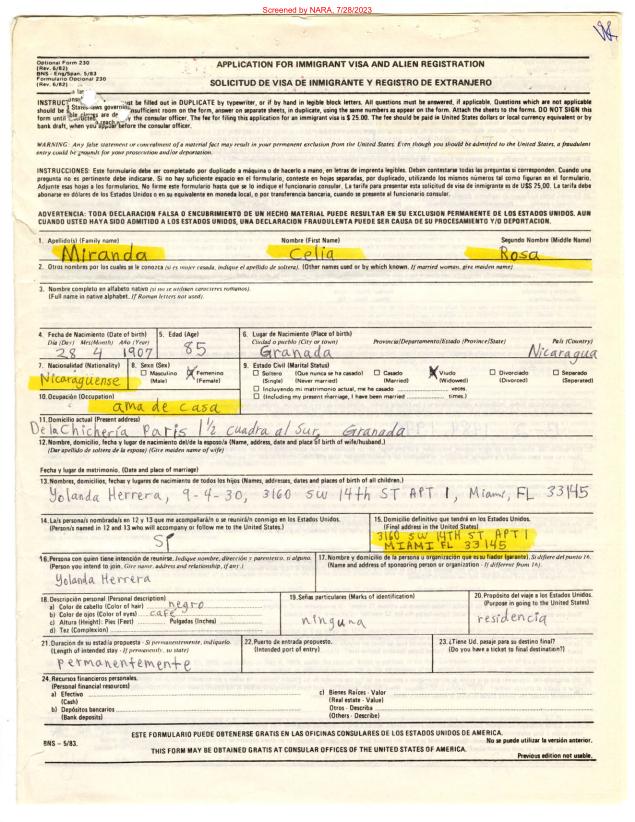 Screened by NARA, 7/28/2023
Optional Form 230
(Rev. 6/82)
BNS - Eng/Span. 5/83
Formulario Opcional 230
(Rev. 6/82)
APPLICATION FOR IMMIGRANT VISA AND ALIEN REGISTRATION
SOLICITUD DE VISA DE INMIGRANTE Y REGISTRO DE EXTRANJERO
must be filled out in DUPLICATE by typewriter, or if by hand in legible block letters. All questions must be answered, if applicable. Questions which are not applicable
should be insufficient room on the form, answer on separate sheets, in duplicate, using the same numbers as appear on the form. Attach the sheets to the forms. DO NOT SIGN this
form until the consular officer. The fee for filing this application for an immigrant visa is $ 25.00. The fee should be paid in United States dollars or local currency equivalent or by
bank draft, when you appear before the consular officer.
WARNING: Any false statement or concealment of a material fact may result in your permanent exclusion from the United States. Even though you should be admitted to the United States, a fraudulent
entry could be grounds for your prosecution and/or deportation.
INSTRUCCIONES: Este formulario debe ser completado por duplicado a máquina o de hacerlo a mano, en letras de imprenta legibles. Deben contestarse todas las preguntas si corresponden. Cuando una
pregunta no es pertinente debe indicarse. Si no hay suficiente espacio en el formulario, conteste en hojas separadas, por duplicado, utilizando los mismos números tal como figuran en el formulario.
Adjunte esas hojas a los formularios. No firme este formulario hasta que se lo indique el funcionario consular. La tarifa para presentar esta solicitud de visa de inmigrante es de U$S 25,00. La tarifa debe
abonarse en dólares de los Estados Unidos o en su equivalente en moneda local, o por transferencia bancaria, cuando se presente al funcionario consular.
ADVERTENCIA: TODA DECLARACION FALSA O ENCUBRIMIENTO DE UN HECHO MATERIAL PUEDE RESULTAR EN SU EXCLUSION PERMANENTE DE LOS ESTADOS UNIDOS. AUN
CUANDO USTED HAYA SIDO ADMITIDO A LOS ESTADOS UNIDOS, UNA DECLARACION FRAUDULENTA PUEDE SER CAUSA DE SU PROCESAMIENTO Y/O DEPORTACION.
1. Apellido(s) (Family name) Nombre (First Name) Segundo Nombre (Middle Name)
Miranda Celia Rosa
2. Otros nombres por los cuales se le conozca (si es mujer casada, indique el apellido de soltera). (Other names used or by which known. If married woman, give maiden name)
3. Nombre completo en alfabeto nativo (si no se utilizan caracteres romanos).
(Full name in native alphabet. If Roman letters not used).
4. Fecha de Nacimiento (Date of birth) 5. Edad (Age) 6. Lugar de Nacimiento (Place of birth)
Día (Day) Mes(Month) Año (Year) Ciudad o pueblo (City or town) Provincia/Departamento/Estado (Province/State) País (Country)
28 4 1907 85 Granada Nicaragua
7. Nacionalidad (Nationality) 8. Sexo (Sex) 9. Estado Civil (Marital Status)
Nicaraguense Masculino X Femenino Soltero (Que nunca se ha casado) Casado X Viudo Divorciado Separado
(Male) (Female) (Single) (Never married) (Married) (Widowed) (Divorced) (Separated)
Incluyendo mi matrimonio actual, me he casado veces.
10. Ocupación (Occupation) (Including my present marriage, I have been married times.)
ama de casa
11. Domicilio actual (Present address)
De la Chichería Paris 1 1/2 cuadra al Sur, Granada
12. Nombre, domicilio, fecha y lugar de nacimiento del/de la esposo/a (Name, address, date and place of birth of wife/husband.)
(Dar apellido de soltera de la esposa) (Give maiden name of wife)
Fecha y lugar de matrimonio. (Date and place of marriage)
13. Nombres, domicilios, fechas y lugares de nacimiento de todos los hijos (Names, addresses, dates and places of birth of all children.)
Yolanda Herrera, 9-4-30, 3160 SW 14th ST APT 1, Miami, FL 33145
14. La/s persona/s nombrada/s en 12 y 13 que me acompañará/n o se reunirá/n conmigo en los Estados Unidos.
(Person/s named in 12 and 13 who will accompany or follow me to the United States.)
Sí
15. Domicilio definitivo que tendrá en los Estados Unidos.
(Final address in the United States)
3160 SW 14TH ST, APT 1
MIAMI FL 33145
16. Persona con quien tiene intención de reunirse. Indique nombre, dirección y parentesco, si alguno.
(Person you intend to join. Give name, address and relationship, if any.)
Yolanda Herrera
17. Nombre y domicilio de la persona u organización que es su fiador (garante). Si difiere del punto 16.
(Name and address of sponsoring person or organization - If different from 16).
18. Descripción personal (Personal description)
a) Color de cabello (Color of hair) negro
b) Color de ojos (Color of eyes) café
c) Altura (Height): Pies (Feet) Pulgadas (Inches)
d) Tez (Complexion)
19. Señas particulares (Marks of identification)
ninguna
20. Propósito del viaje a los Estados Unidos.
(Purpose in going to the United States)
residencia
21. Duración de su estadía propuesta - Si permanentemente, indíquelo.
(Length of intended stay - If permanently, so state)
permanentemente
22. Puerto de entrada propuesto.
(Intended port of entry)
23. ¿Tiene Ud. pasaje para su destino final?
(Do you have a ticket to final destination?)
24. Recursos financieros personales.
(Personal financial resources)
a) Efectivo
(Cash)
b) Depósitos bancarios
(Bank deposits)
c) Bienes Raíces - Valor
(Real estate - Value)
Otros - Describa
(Others - Describe)
ESTE FORMULARIO PUEDE OBTENERSE GRATIS EN LAS OFICINAS CONSULARES DE LOS ESTADOS UNIDOS DE AMERICA.
No se puede utilizar la versión anterior.
BNS - 5/83.
THIS FORM MAY BE OBTAINED GRATIS AT CONSULAR OFFICES OF THE UNITED STATES OF AMERICA.
Previous edition not usable.